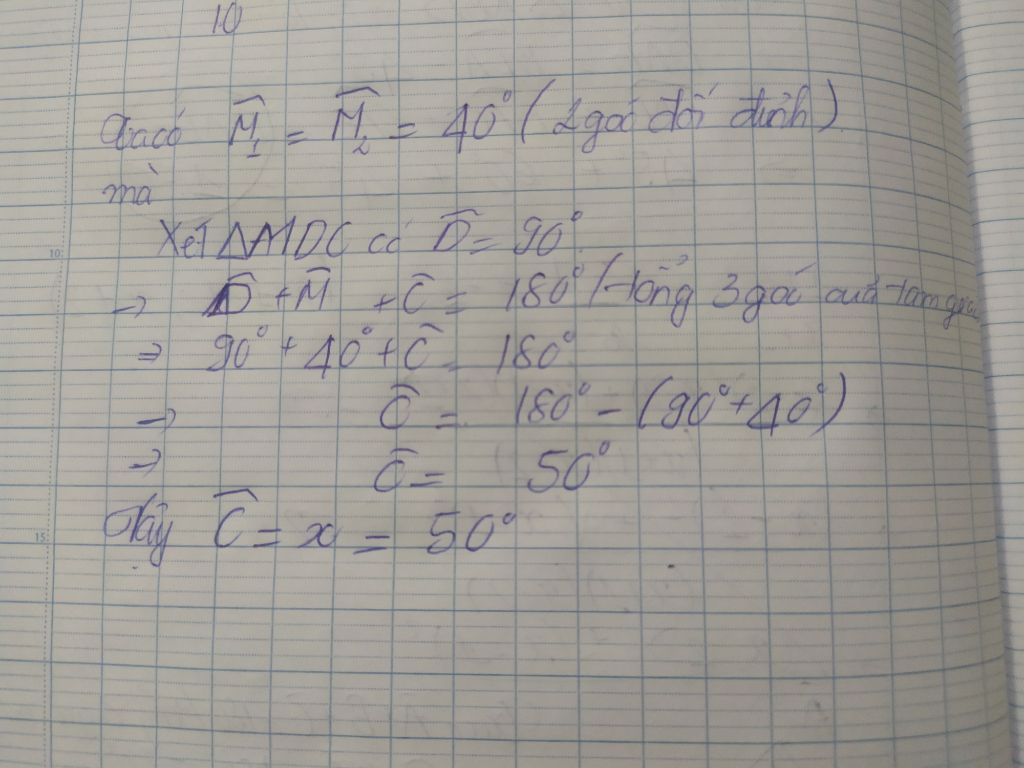 10
Ta có M̂₁ = M̂₂ = 40° (2 góc đối đỉnh)
mà
Xét ΔMDC có D̂ = 90°
→ D̂ + M̂ + Ĉ = 180° (tổng 3 góc của tam giác
⇒ 90° + 40° + Ĉ = 180°
→ Ĉ = 180° - (90° + 40°)
→ Ĉ = 50°
Vậy Ĉ = x = 50°
10
15